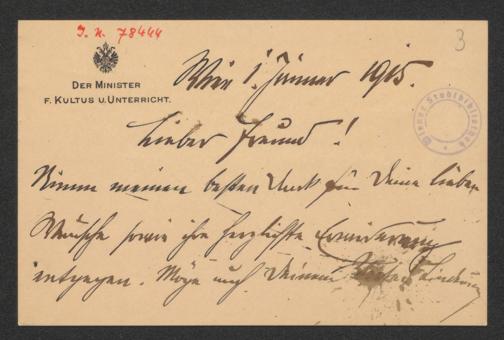 J. N. 78444
3
DER MINISTER
F. KULTUS U. UNTERRICHT.
Wien 1. Jänner 1915.
Wiener Stadtbibliothek
Lieber Freund!
Nimm meinen besten Dank für Deine lieben
Wünsche sowie ihre herzlichste Erwiderung
entgegen. Möge auch Deinem Linderung